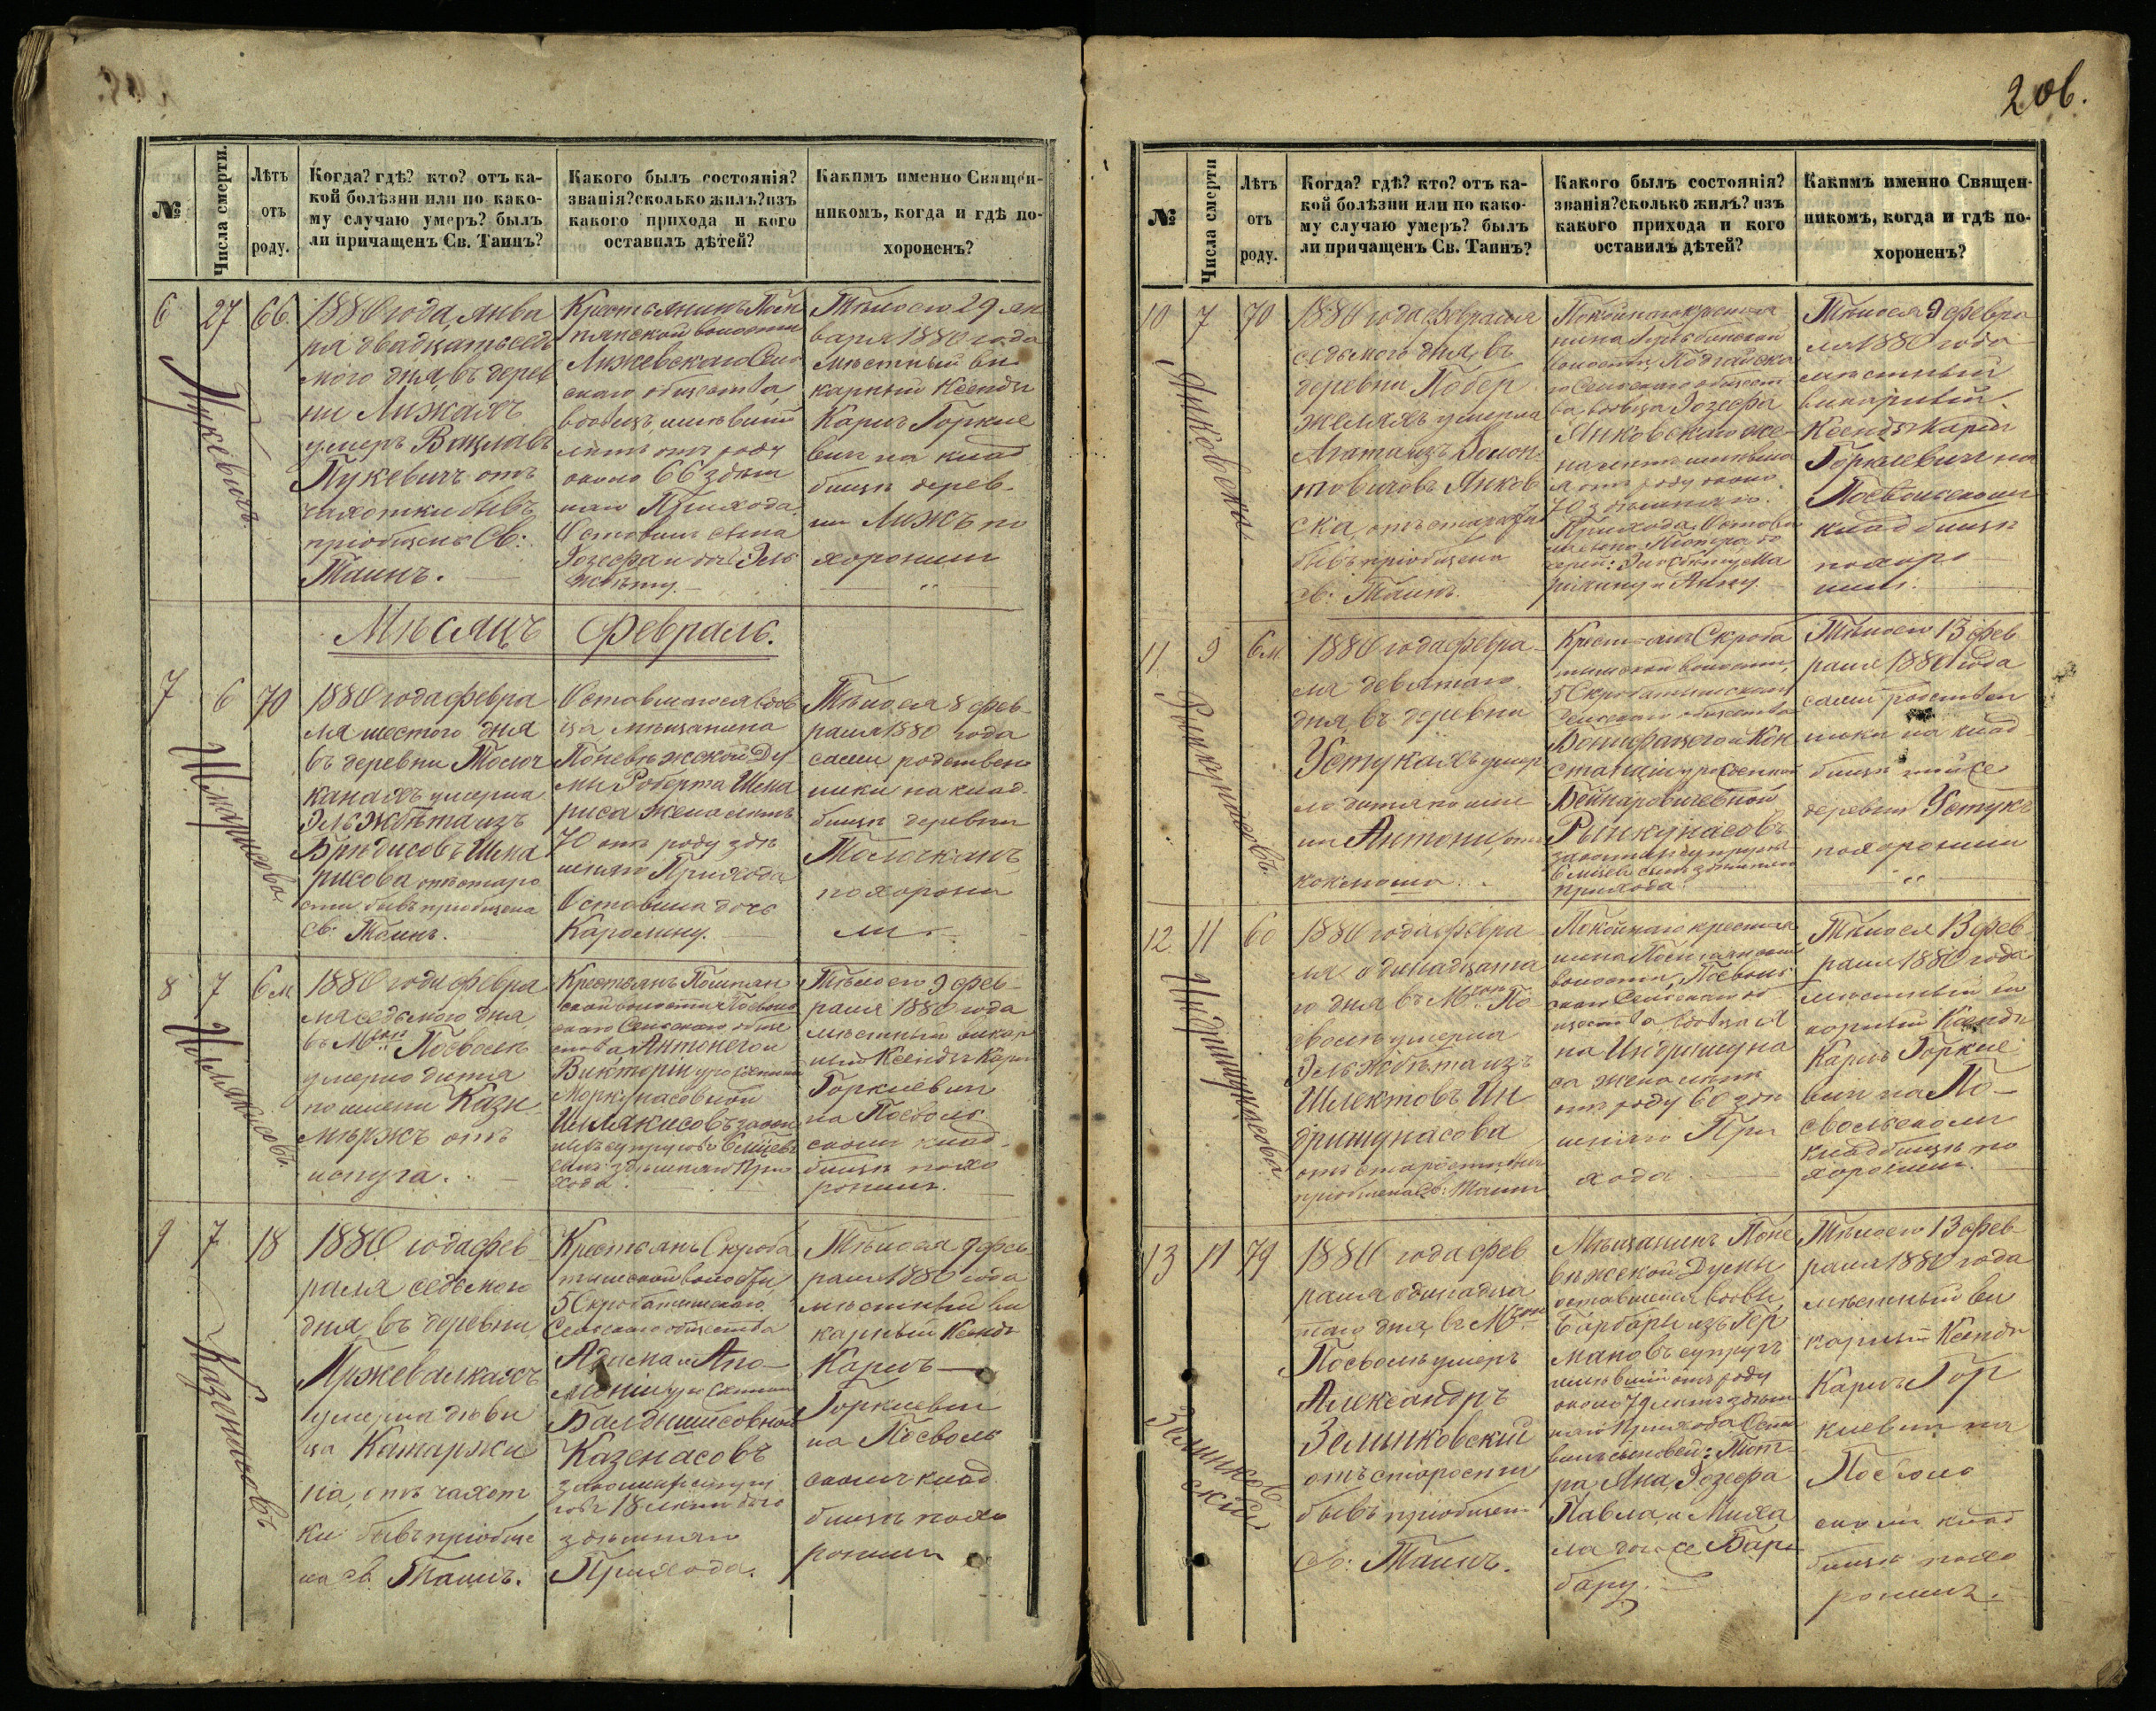 206.
№
Числа смерти.
Лѣтъ
отъ
роду.
Когда? гдѣ? кто? отъ ка-
кой болѣзни или по како-
му случаю умеръ? былъ
ли причащенъ Св. Таинъ?
Какого былъ состоянія?
званія? сколько жилъ? изъ
какого прихода и кого
оставилъ дѣтей?
Какимъ именно Священ-
никомъ, когда и гдѣ по-
хороненъ?
6
27
66.
Пукевичъ
1880 года, янва
ря двадцать седь
мого дня, въ дерев
ни Лижахъ
умеръ Вацлавъ
Пукевичъ отъ
чахотки бывъ
пріобщенъ Св:
Таинъ.
Крестьянинъ
волости
Лижевскаго
скаго общества,
вдовецъ, имѣвшій
лѣтъ отъ роду
около 66 здѣш
няго Прихода.
Оставилъ сына
Іозефа и доч. Эль
жбѣту.
Тѣло его 29 ян
варя 1880 года
мѣстный ви
карный Ксендзъ
Карлъ Горкие
вич на клад
бищѣ дерев
ни Лижъ по
хоронилъ
Мѣсяцъ Февраль.
7
6
70
Шмарисова
1880 года февра
ля шестого дня
въ деревни Толюч
канахъ умерла
Эльжбѣта изъ
Бриедисовъ Шма
рисова отъ старо
сти бывъ пріобщена
св: Таинъ.
Оставшагося вдов
ца мѣщанина
Поневѣжской Ду
мы Роберта Шма
риса жена лѣтъ
70 отъ роду здѣ
шняго Прихода
Оставила дочь
Каролину.
Тѣло ея 8 фев
раля 1880 года
сами родствен
ники на клад
бищѣ деревни
Толючканъ
похорони
ли.
8
7
6 м
1880 года февра
ля седьмого дня
въ М. Посволѣ
умерло дитя
по имени Кази
мѣржъ отъ
испуга.
Крестьянъ
ской волости
скаго Сельскаго обще
ства, Антонего и
Викторіи урожденной
супруговъ 6 мѣсяцевъ
сынъ здѣшняго При
хода.
Тѣло его 9 фев
раля 1880 года
мѣстный викар
ный Ксендзъ Карлъ
Горкиевич
на Посволь
скомъ клад
бищѣ похо
ронилъ.
9
7
18
Казенасовъ
1880 года фев
раля седьмого
дня, въ деревни
Пржевалкахъ
умерла дѣви
ца Катаржи
на, отъ чахот
ки бывъ пріобще
на св. Таинъ.
Крестьянъ Скроба
тишской волости,
5 Скробатишскаго
Сельскаго общества
Адама и Апо
лоніи урожденной
Балдышисовной
Казенасовъ
законныхъ супру
говъ 18 лѣтъ дочь
здѣшняго
Прихода.
Тѣло ея 9 фев
раля 1880 года
мѣстный ви
карный Ксендзъ
Карлъ
Горкиевич
на Посволь
скомъ клад
бищѣ похо
ронилъ
№
Числа смерти
Лѣтъ
отъ
роду.
Когда? гдѣ? кто? отъ ка-
кой болѣзни или по како-
му случаю умеръ? былъ
ли причащенъ Св. Таинъ?
Какого былъ состоянія?
званія? сколько жилъ? изъ
какого прихода и кого
оставилъ дѣтей?
Какимъ именно Священ-
никомъ, когда и гдѣ по-
хороненъ?
10
7
70
Янковска
1880 года февраля
седьмого дня, въ
деревни Побер
желяхъ умерла
Агата изъ
товичовъ Янков
ска, отъ старости
бывъ пріобщена
св: Таинъ.
Покойнаго крестья
нина
волости,
го Сельскаго общест
ва, вдовца Іозефа
Янковскаго же
на лѣтъ имѣвша
я отъ роду около
70 здѣшняго
Прихода. Остави
ла сына Піотра до
черей: Эльжбѣту, Ма
ріянну и Анну.
Тѣло ея 9 февра
ля 1880 года
мѣстный
викарный
Ксендзъ Карлъ
Горкиевич на
Посвольскомъ
кладбищѣ
похоро
нилъ.
11
9
6 м
1880 года февра
ля девятаго
дня, въ деревни
Устукяхъ умер
ло дитя по име
ни Антони, отъ
коклюша.
Крестьянъ Скроба
тишской волости,
5 Скробатишскаго
Сельскаго общества
Бонифацего и Кон
станціи урожденной
Рынкунасовъ
законныхъ супруговъ
6 мѣсяцевъ сынъ здѣшняго
прихода.
Тѣло его 13 фев
раля 1880 года
сами родствен
ники на клад
бищѣ той же
деревни Устукъ
похоронили
12
11
60
Индришунасова
1880 года февра
ля одинадцата
го дня въ М. По
сволѣ умерла
Эльжбѣта изъ
Шлектовъ Ин
дришунасова
отъ старости бывъ
пріобщена Св: Таинъ
Покойнаго крестья
нина
волости, Посволь
скаго Сельскаго об
щества вдовца Я
на Индришуна
са жена лѣтъ
отъ роду 60 здѣ
шняго При
хода
Тѣло ея 13 фев
раля 1880 года
мѣстный ви
карный Ксендзъ
Карлъ Горкие
вич на По
свольскомъ
кладбищѣ по
хоронилъ.
13
11
79
Зелинков
скій
1880 года фев
раля одинадца
таго дня, въ М.
Посволѣ умеръ
Александръ
Зелинковский
отъ старости
бывъ пріобщенъ
Св: Таинъ.
Мѣщанинъ Поне
вѣжской Думы
оставшейся вдовы
Барбары изъ Гер
мановъ супругъ
имѣвшій отъ роду
около 79 лѣтъ здѣш
няго Прихода Оста
вилъ сыновей: Піот
ра, Яна, Іозефа
Павла, и Миха
ла дочь Бар
бару.
Тѣло его 13 фев
раля 1880 года
мѣстный ви
карный Ксендзъ
Карлъ Гор
киевич на
Посволь
скомъ клад
бищѣ похо
ронилъ.